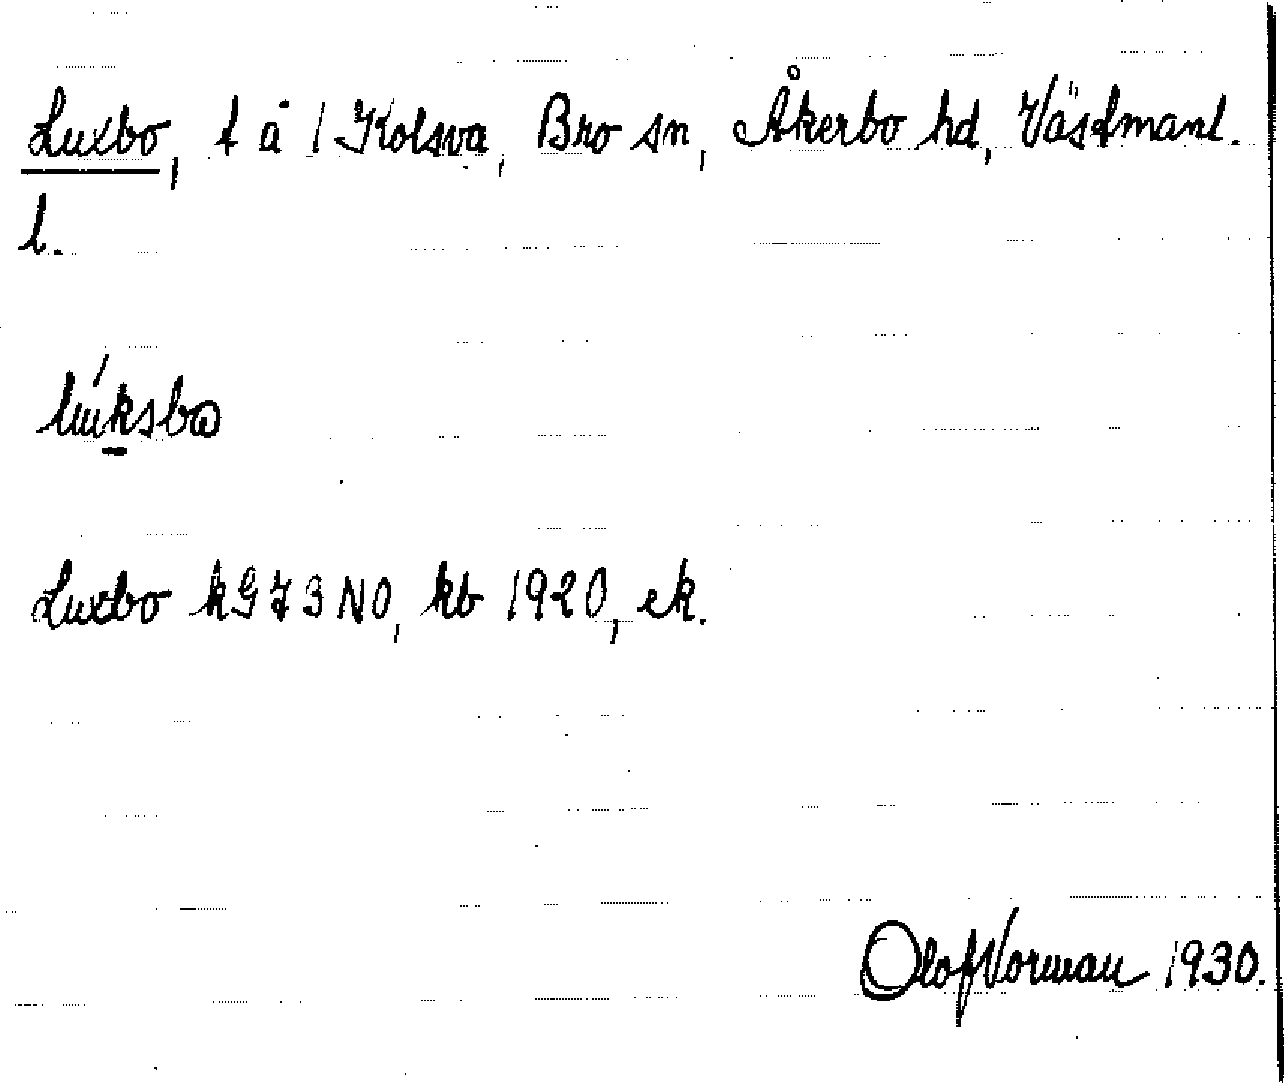 Luxbo, t å 1 Kolsva, Bro sn, Åkerbo hd, Västmanl.
l.
lúksbo
Luxbo kGJ3NO, kb 1920, ek.
Olof Norman 1930.